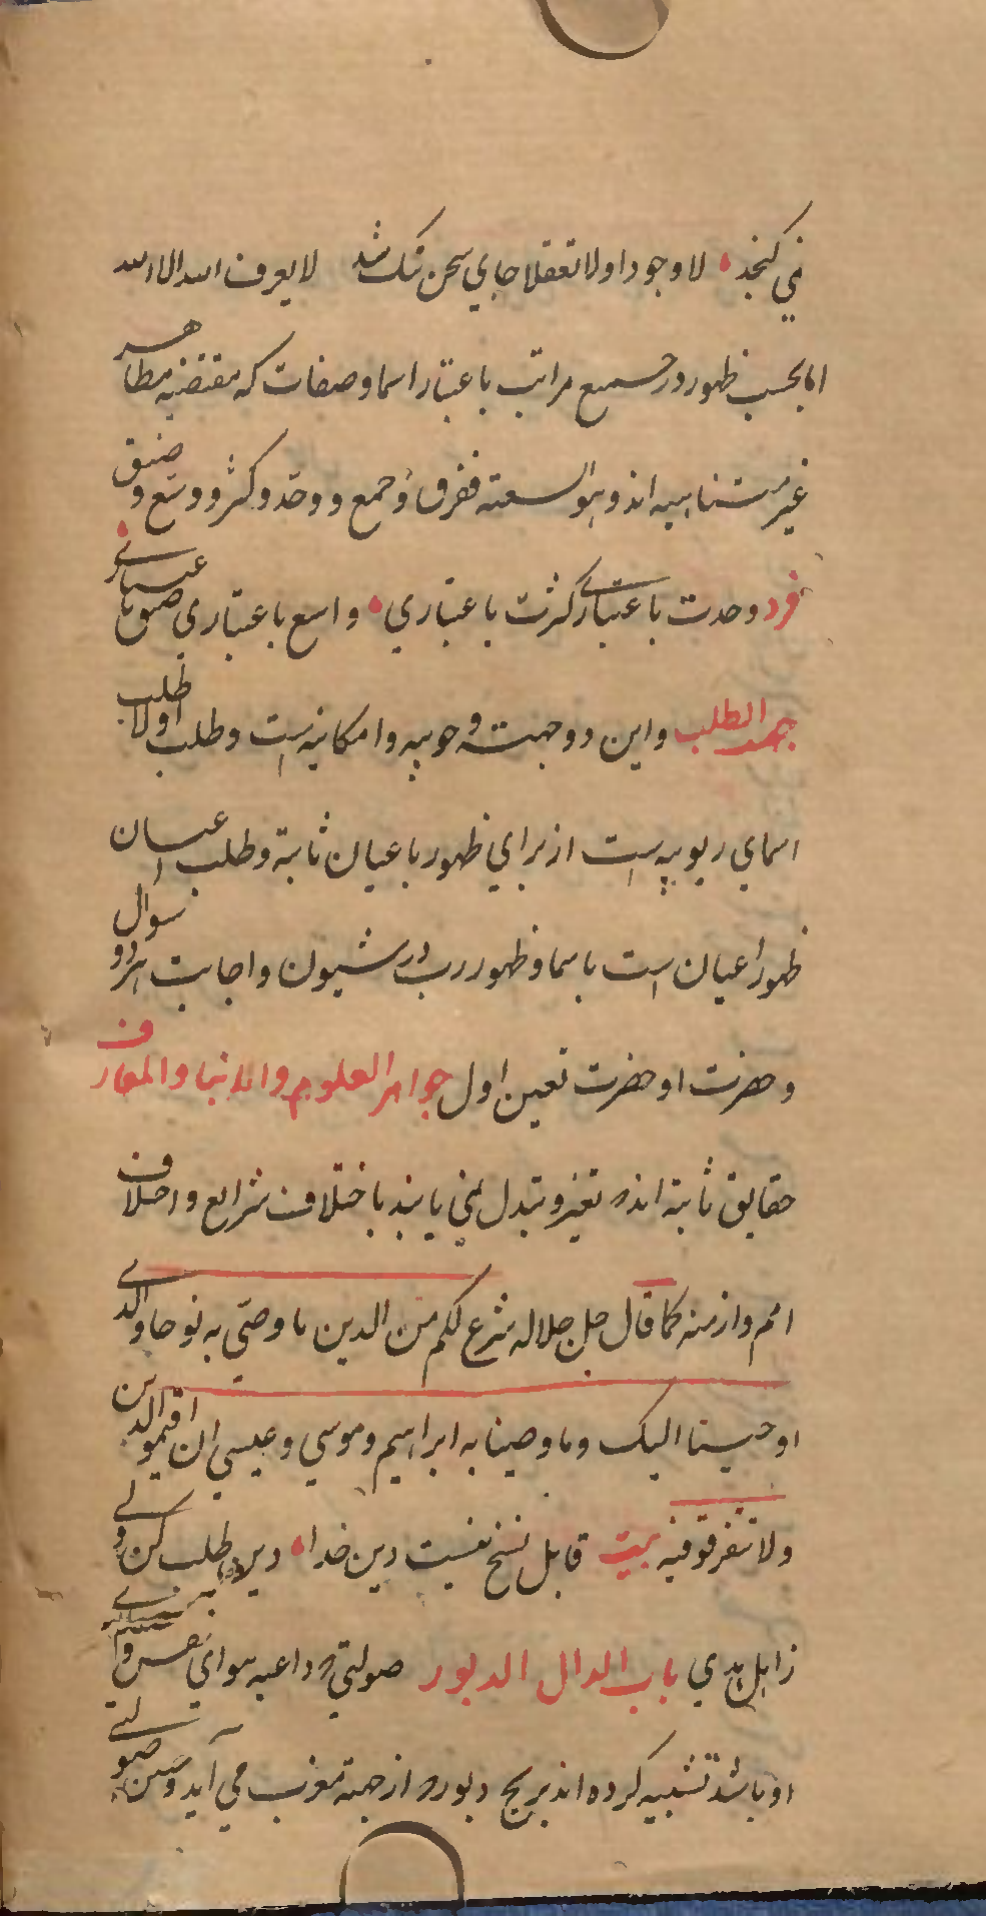 نمی کنجد لا وجودا ولا تعقلا جای سخن تنک شد لا یعرف الله الا الله
اما بحسب ظهور در جمیع مراتب باعتبار اسما و صفات که مقتضیه مظاهر
غیر متناهیه اند و هو السعته ففرق و جمع و وحد و کثر و وسع و ضیق
فرد وحدت باعتباری کثرت باعتباری واسع باعتباری ضیق باعتباری
جهتا الطلب و این دو جهت وجوبیه و امکانیه است و طلب اولا طلب
اسمای ربوبیه است از برای ظهور باعیان ثابتة و طلب اعیان
ظهور اعیان است باسما و ظهور رب در شیون و اجابت هر دو سوال
و حضرت او حضرت تعین اول جواهر العلوم والانبا والمعارف
حقایق ثابتة اند تغیر و تبدل نمی یابند باختلاف شرایع و اختلاف
امم و ازمنه کما قال جل جلاله شرع لکم من الدین ما وصّی به نوحا والذی
اوحینا الیک وما وصینا به ابراهیم وموسی وعیسی ان اقیمو الدین
ولا تتفرقو فیه بیت قابل نسخ نیست دین خدا دین طلب کن ولی
ز اهل هدی باب الدال الدبور صولتی داعیه هوای نفس و
او باشد تشبیه کرده اند بریح دبور از جهة مغرب می آید و صولتی